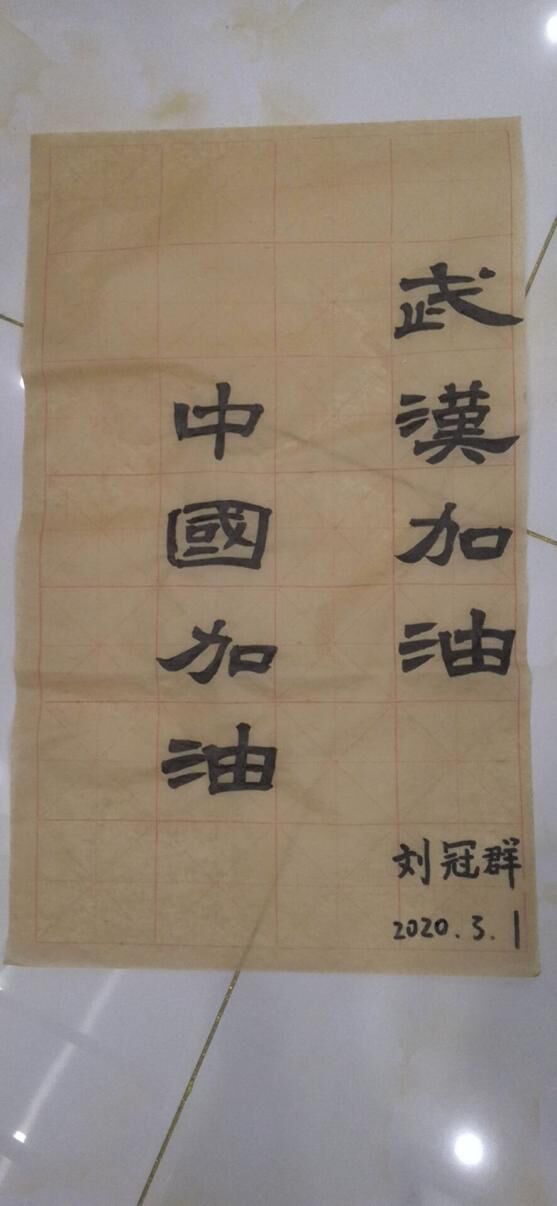 武漢加油
中國加油
刘冠群
2020.3.1